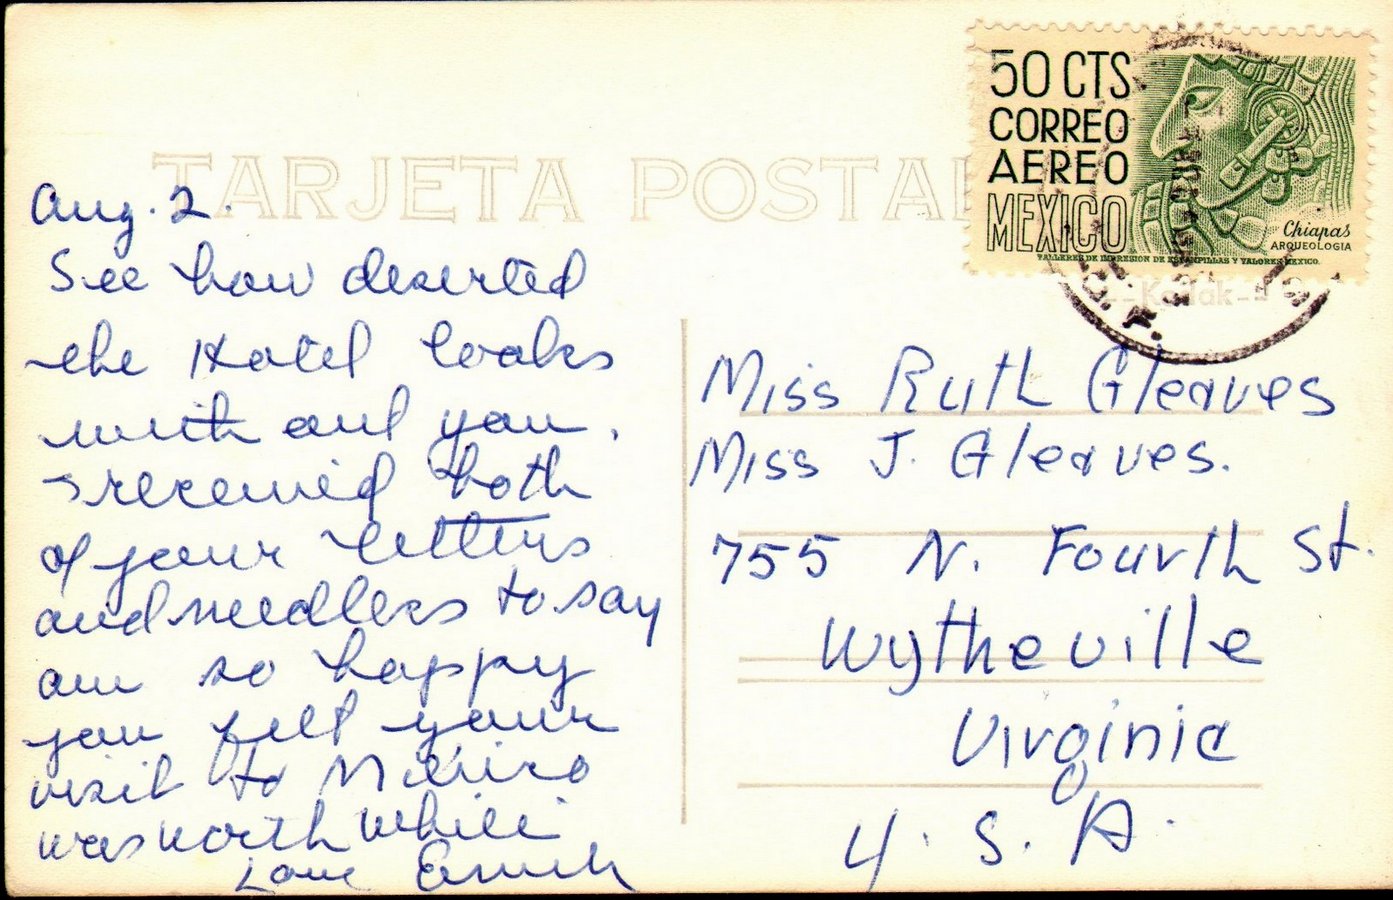 TARJETA POSTAL
50 CTS
CORREO
AEREO
MEXICO
Chiapas
ARQUEOLOGIA
TALLERES DE IMPRESION DE ESTAMPILLAS Y VALORES MEXICO.
Kodak
D. F.
Aug. 2.
See how deserted
the Hotel looks
with out you.
received both
of your letters
and needless to say
am so happy
you felt your
visit to Mexico
was worth while
Love
Miss Ruth Gleaves
Miss J. Gleaves.
755 N. Fourth St.
Wytheville
Virginia
U. S. A.